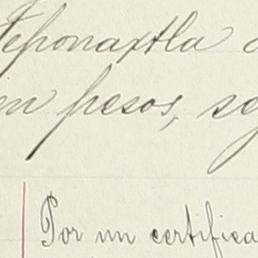 Teponaxtla
pesos, 
Por un certifica